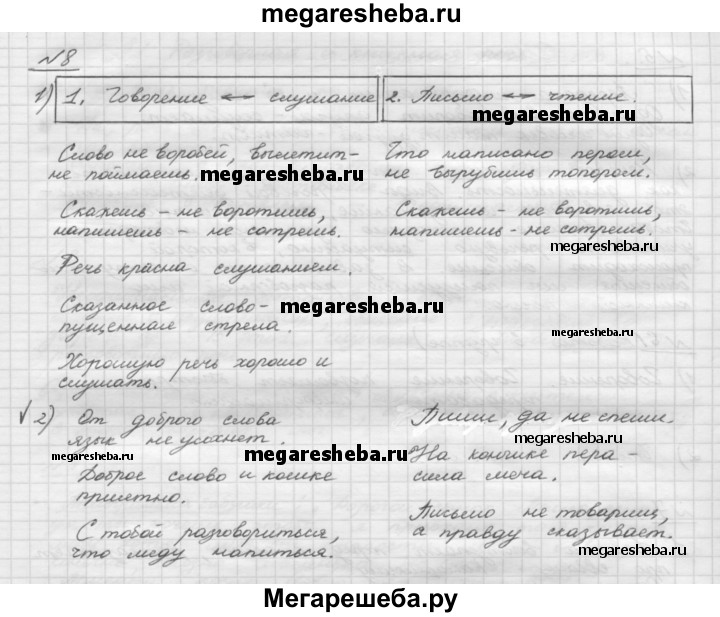 megaresheba.ru
№8
1) 1. Говорение ↔ слушание 2. Письмо ↔ чтение.
megaresheba.ru
Слово не воробей, вылетит-
не поймаешь.
megaresheba.ru
Что написано пером,
не вырубишь топором.
Скажешь - не воротишь,
напишешь - не сотрешь.
Скажешь - не воротишь,
напишешь - не сотрешь.
megaresheba.ru
Речь красна слушанием.
Сказанное слово-
пущенная стрела.
megaresheba.ru
megaresheba.ru
Хорошую речь хорошо и
слушать.
√ 2) От доброго слова
язык не усохнет.
megaresheba.ru
Доброе слово и кошке
приятно.
С тобой разговориться,
что меду напиться.
Пиши, да не спеши.
megaresheba.ru
На кончике пера -
сила меча.
Письмо не товарищ,
а правду сказывает.
megaresheba.ru
Мегарешеба.ру